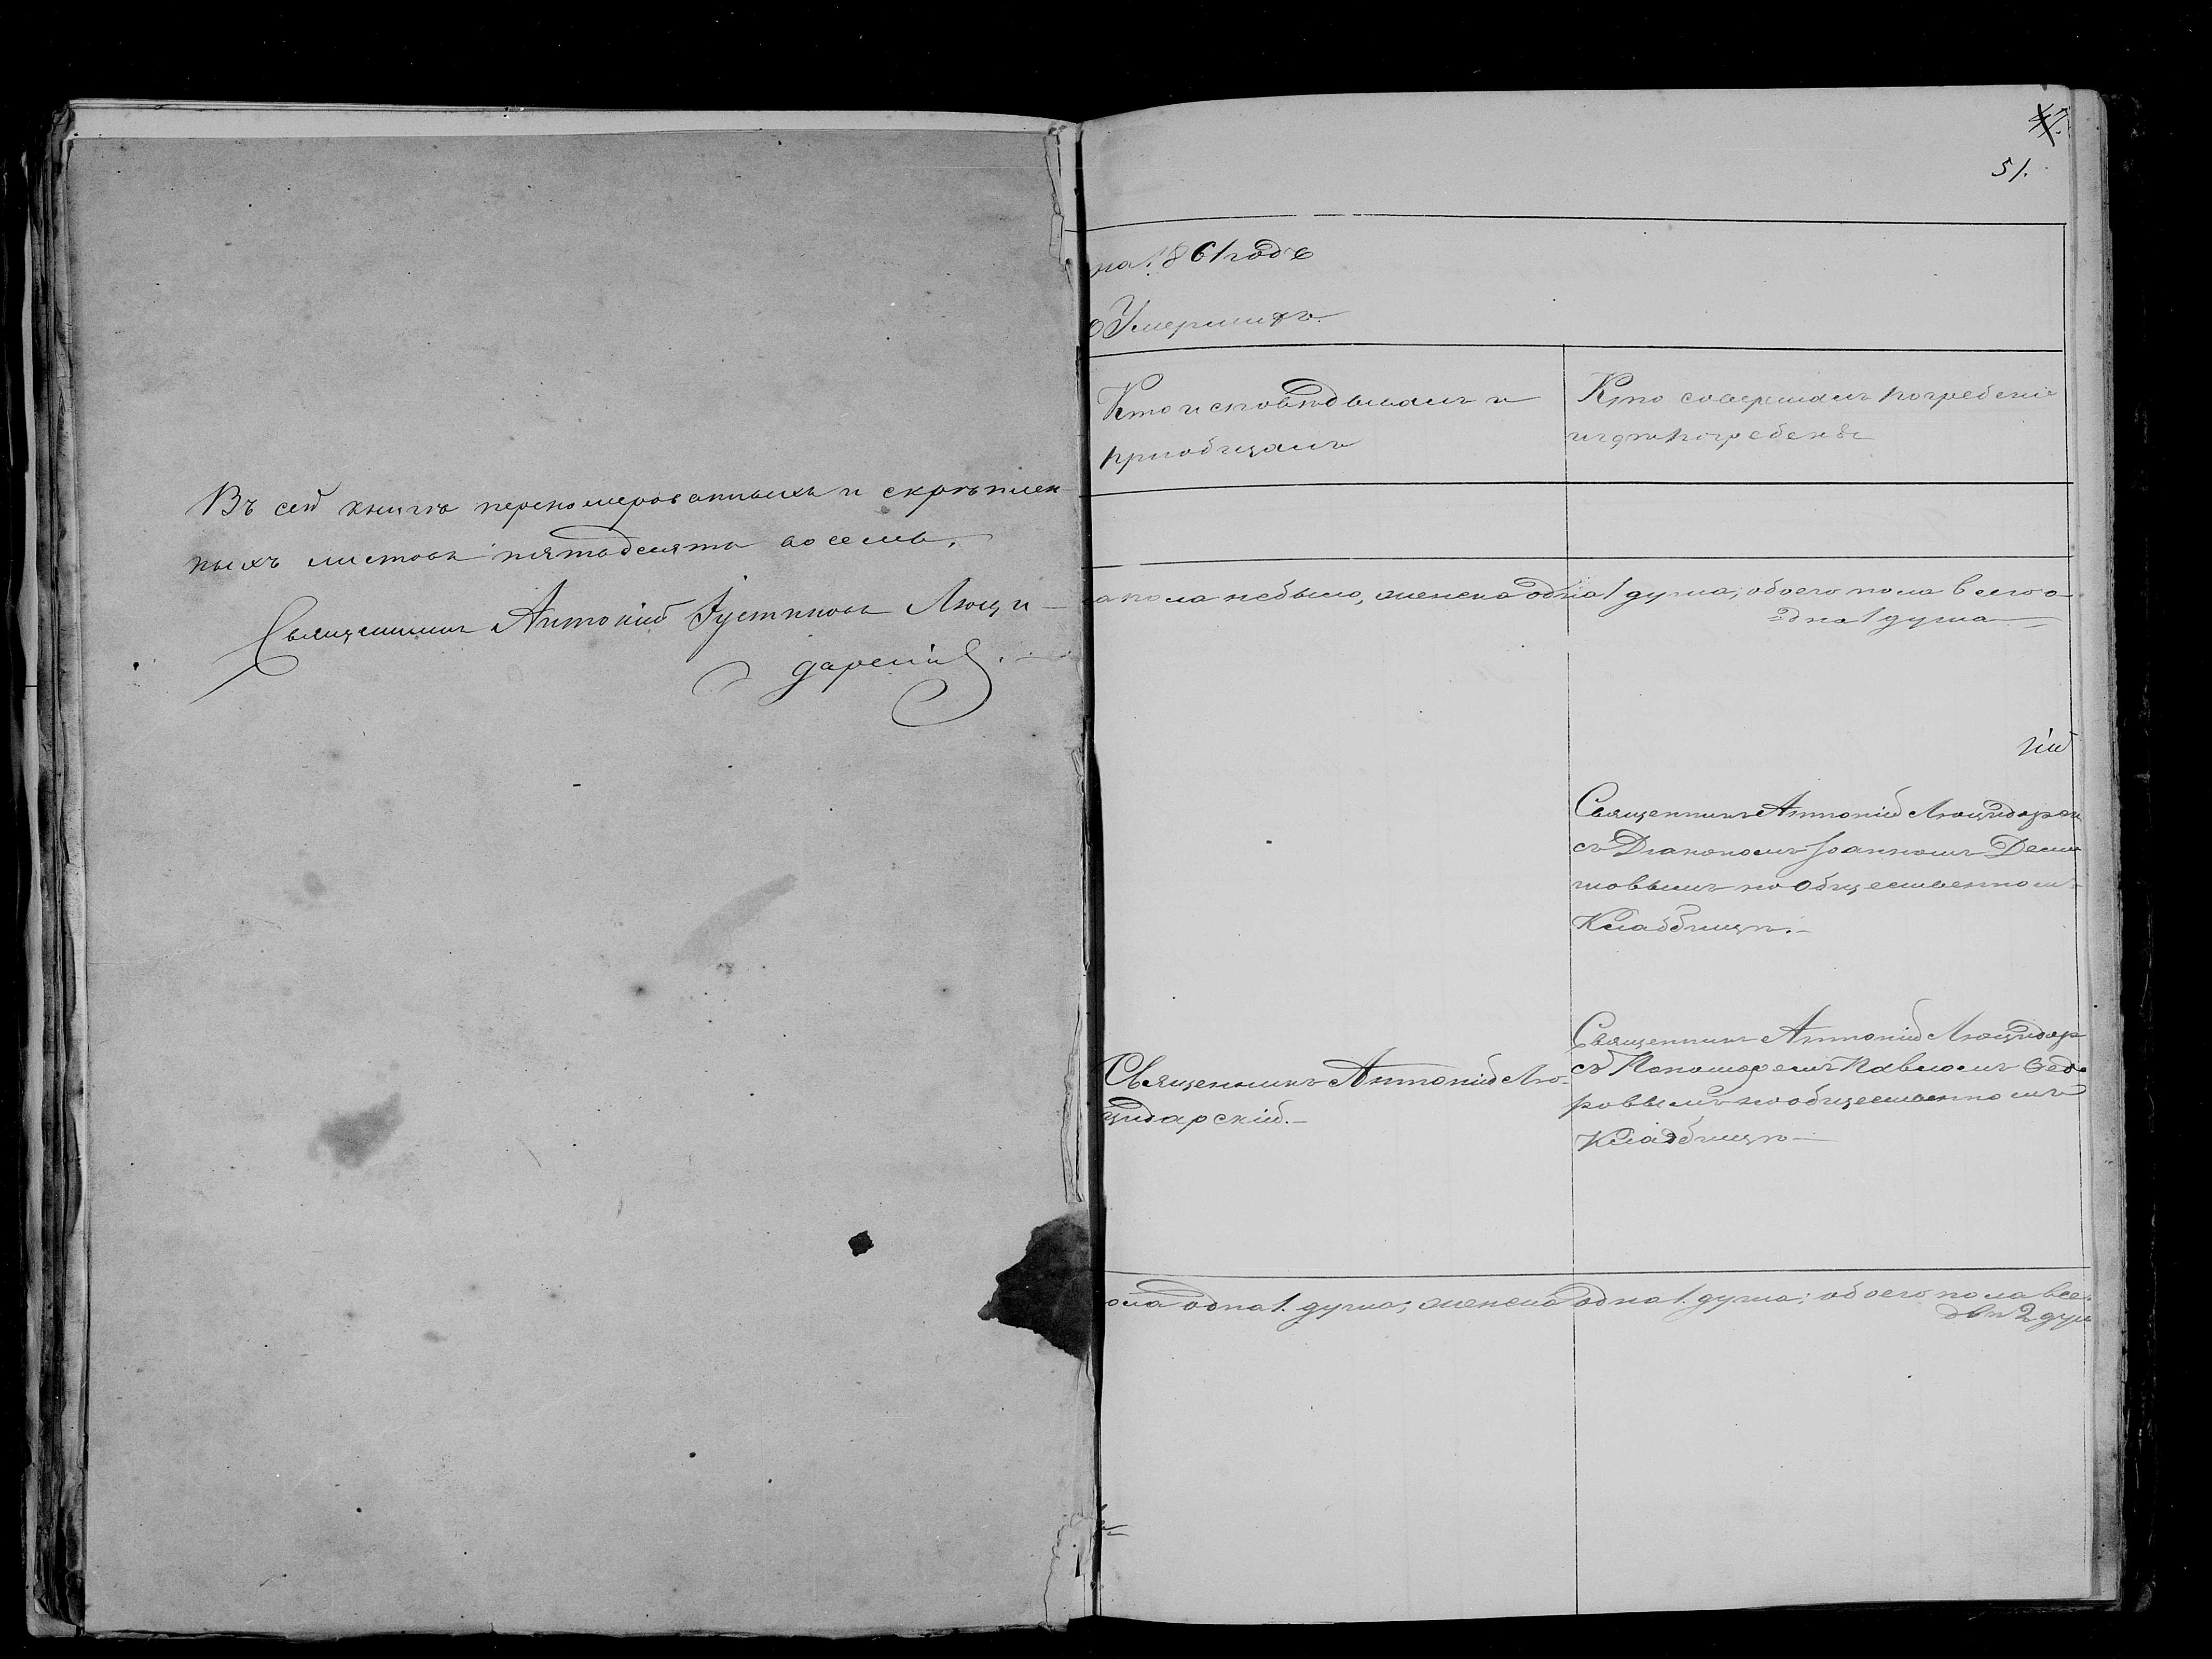 Въ сей книгѣ перенумерованныхъ и скрѣплен
ныхъ листовъ пятьдесятъ восемь.
Священникъ Антоній Іустиновъ Люци-
дарскій.
47.
51.
на 1861 годъ
Умершихъ.
Кто исповѣдывалъ и
приобщалъ
Кто совершалъ погребеніе
и гдѣ погребены
пола небыло, женска одна 1 душа; обоего пола всего о-
дна 1 душа
гій
Священникъ Антоній Люцидарск
съ Діакономъ Іоанномъ
на Общественномъ
Кладбищѣ.-
Священникъ Антоній Лю-
цидарскій.-
Священникъ Антоній Люцидар
съ Пономаремъ Павломъ Федо
ровымъ на общественномъ
Кладбищѣ-
ола одна 1. душа; женска одна 1. душа; обоего пола все.
двѣ 2 душ